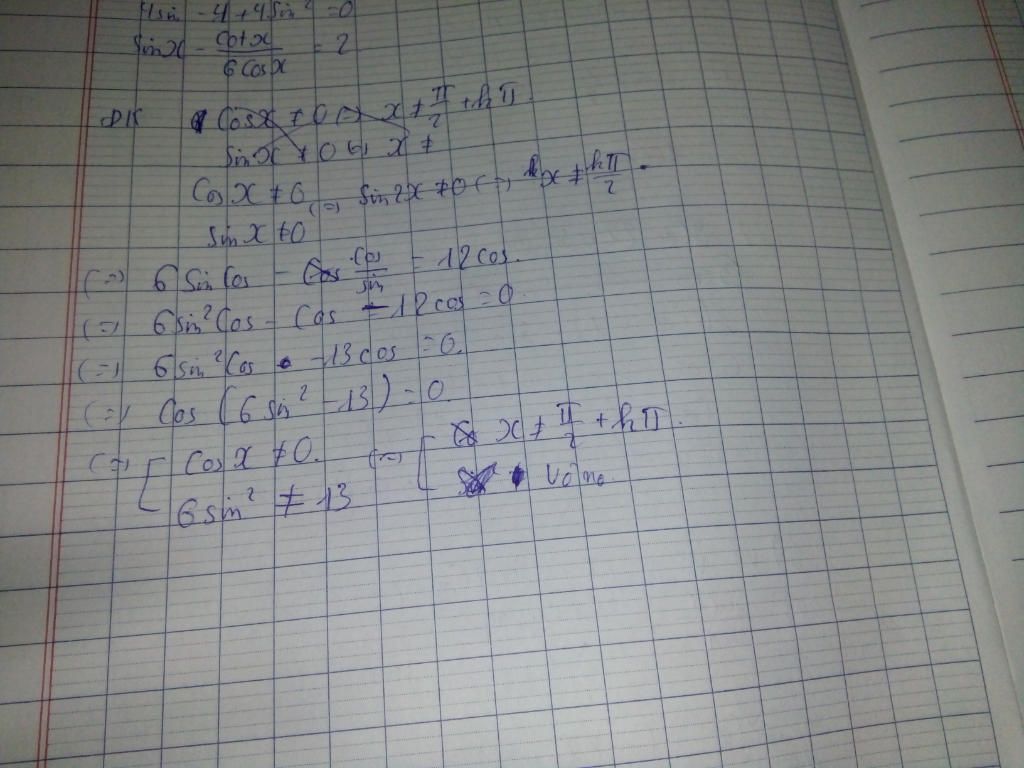 4sin - 4 + 4sin² = 0
sinx - cotx / 6cosx = 2
ĐK cosx ≠ 0 (=) x ≠ π/2 + kπ
sinx ≠ 0 x ≠
cosx ≠ 0 (=) sin2x ≠ 0 (=) x ≠ kπ/2
sinx ≠ 0
(=) 6 sin cos - cos/sin = 12 cos.
(=) 6sin² cos - cos - 12 cos = 0
(=) 6sin² cos - 13 cos = 0.
(=) cos (6sin² - 13) = 0.
(=) [ cosx ≠ 0. (=) [ x ≠ π/2 + kπ.
6sin² ≠ 13 vô no